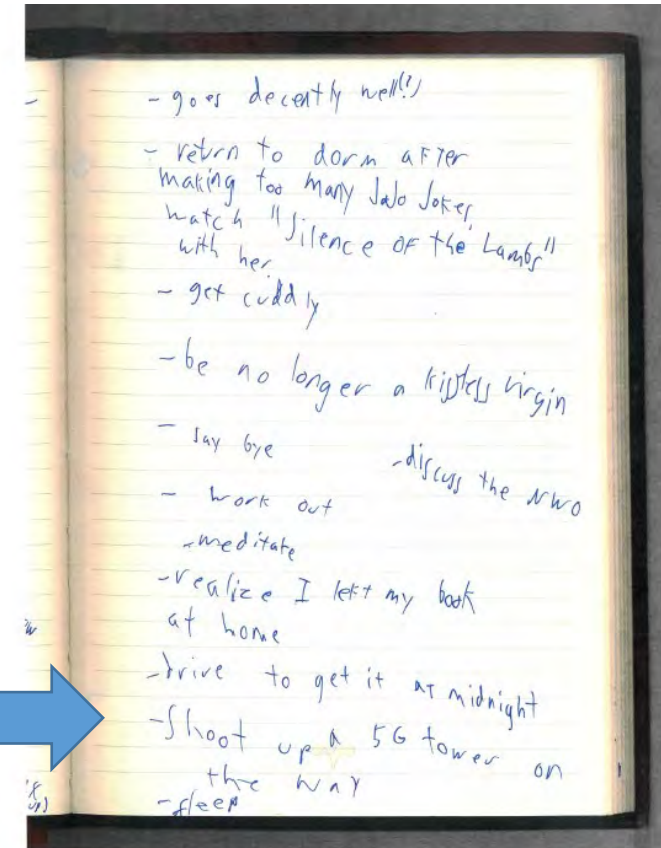 - goes decently well(?)
- return to dorm after
making too many JoJo Jokes,
watch "Silence OF the Lambs"
with her
- get cuddly
- be no longer a kissless virgin
- say bye
- discuss the NWO
- work out
- meditate
- realize I left my book
at home
- drive to get it at midnight
- Shoot up a 5G tower on
the way
- sleep